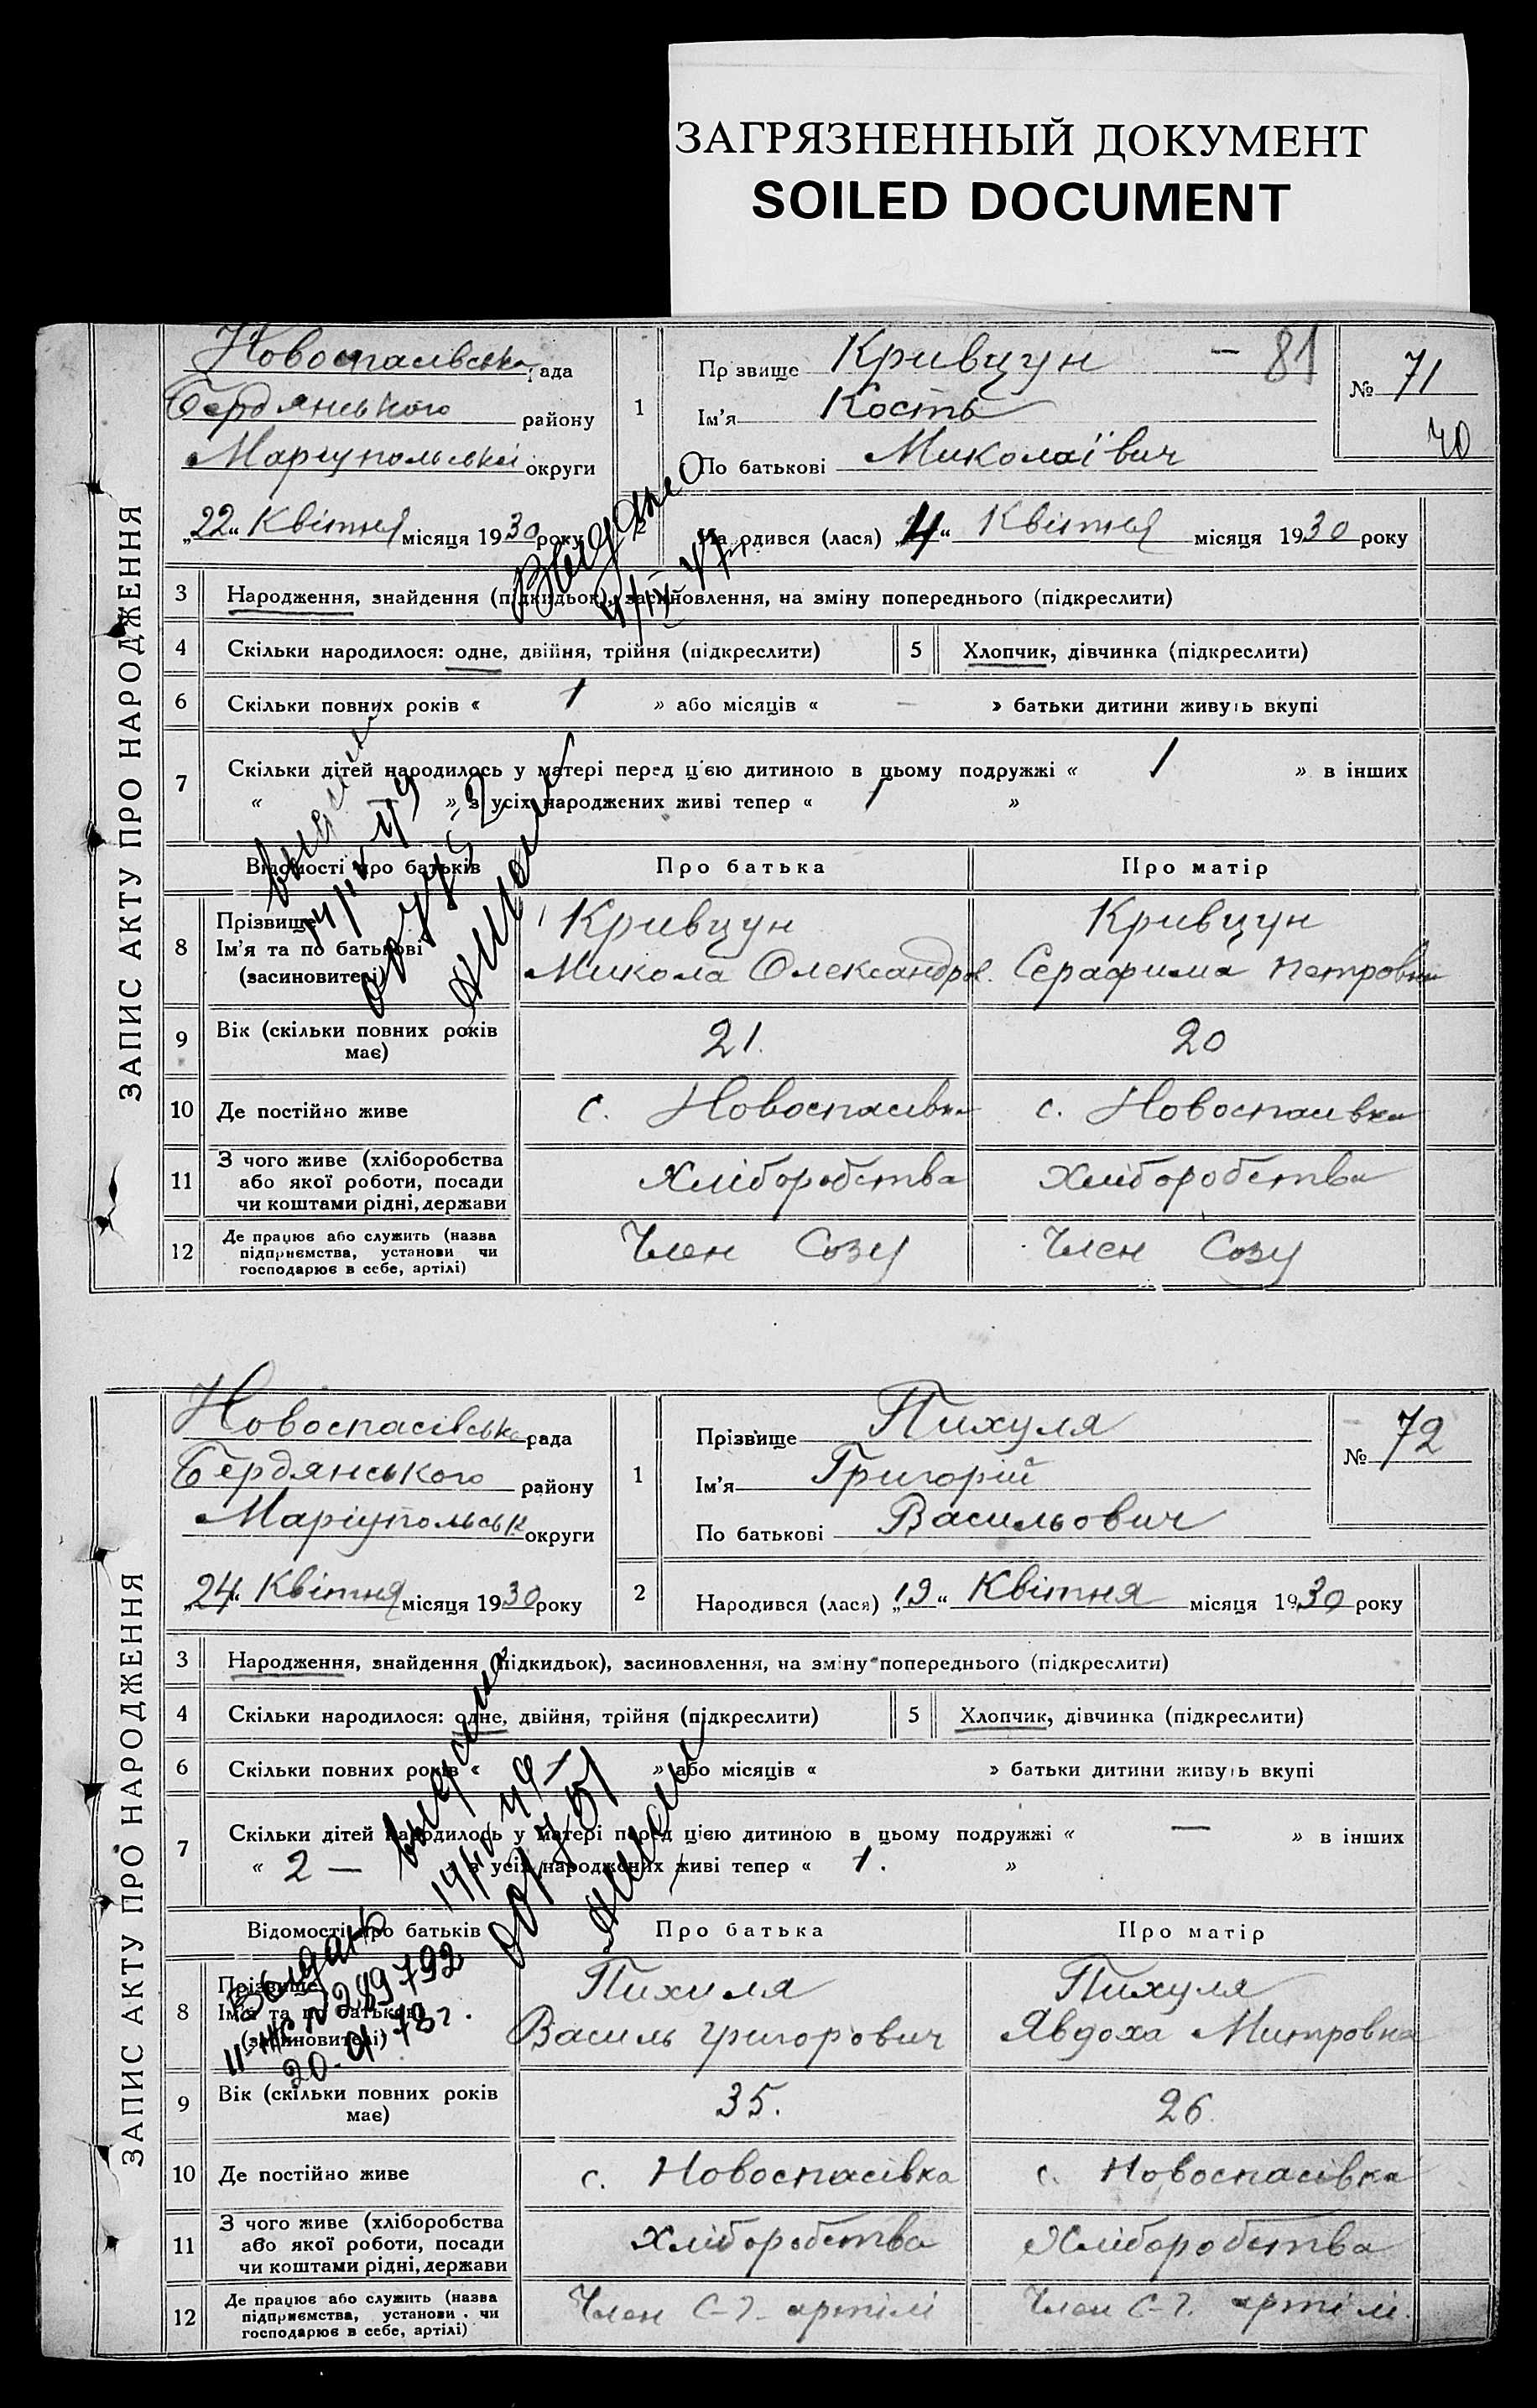 ЗАГРЯЗНЕННЫЙ ДОКУМЕНТ
SOILED DOCUMENT
ЗАПИС АКТУ ПРО НАРОДЖЕННЯ
Новоспасівська рада
Бердянського району
Маріупольської округи
„22“ Квітня місяця 1930 року
1
Прізвище Кривцун – 81
Ім'я Кость
По батькові Миколаївич
№ 71
70
2
Народився (лася) „4“ Квітня місяця 1930 року
Выдано
3 Народження, знайдення (підкидьок), засиновлення, на зміну попереднього (підкреслити)
4 Скільки народилося: одне, двійня, трійня (підкреслити) 5 Хлопчик, дівчинка (підкреслити)
6 Скільки повних років « 1 » або місяців « — » батьки дитини живуть вкупі
7 Скільки дітей народилось у матері перед цією дитиною в цьому подружжі « 1 » в інших
« » з усіх народжених живі тепер « 1 »
Відомості про батьків Про батька Про матір
8 Прізвище Кривцун Кривцун
Ім'я та по батькові
(засиновителі) Микола Олександров. Серафима Петровна
9 Вік (скільки повних років 21. 20
має)
10 Де постійно живе с. Новоспасівка с. Новоспасівка
11 З чого живе (хліборобства
або якої роботи, посади Хліборобства Хліборобства
чи коштами рідні, держави
12 Де працює або служить (назва
підприємства, установи чи Член Созу Член Созу
господарює в себе, артілі)
ЗАПИС АКТУ ПРО НАРОДЖЕННЯ
Новоспасівська рада
Бердянського району
Маріупольськ округи
„24“ Квітня місяця 1930 року
1
Прізвище Пихуля
Ім'я Григорій
По батькові Васильович
№ 72
2 Народився (лася) „19“ Квітня місяця 1930 року
3 Народження, знайдення (підкидьок), засиновлення, на зміну попереднього (підкреслити)
4 Скільки народилося: одне, двійня, трійня (підкреслити) 5 Хлопчик, дівчинка (підкреслити)
6 Скільки повних років « 1 » або місяців « » батьки дитини живуть вкупі
7 Скільки дітей народилось у матері перед цією дитиною в цьому подружжі « — » в інших
« 2 — » з усіх народжених живі тепер « 1. »
Відомості про батьків Про батька Про матір
8 Прізвище Пихуля Пихуля
Ім'я та по батькові
(засиновителі) Василь Григорович Явдоха Митровна
9 Вік (скільки повних років 35. 26.
має)
10 Де постійно живе с. Новоспасівка с. Новоспасівка
11 З чого живе (хліборобства
або якої роботи, посади Хліборобства Хліборобства
чи коштами рідні, держави
12 Де працює або служить (назва
підприємства, установи чи Член С-г. артілі Член С-г. артілі.
господарює в себе, артілі)